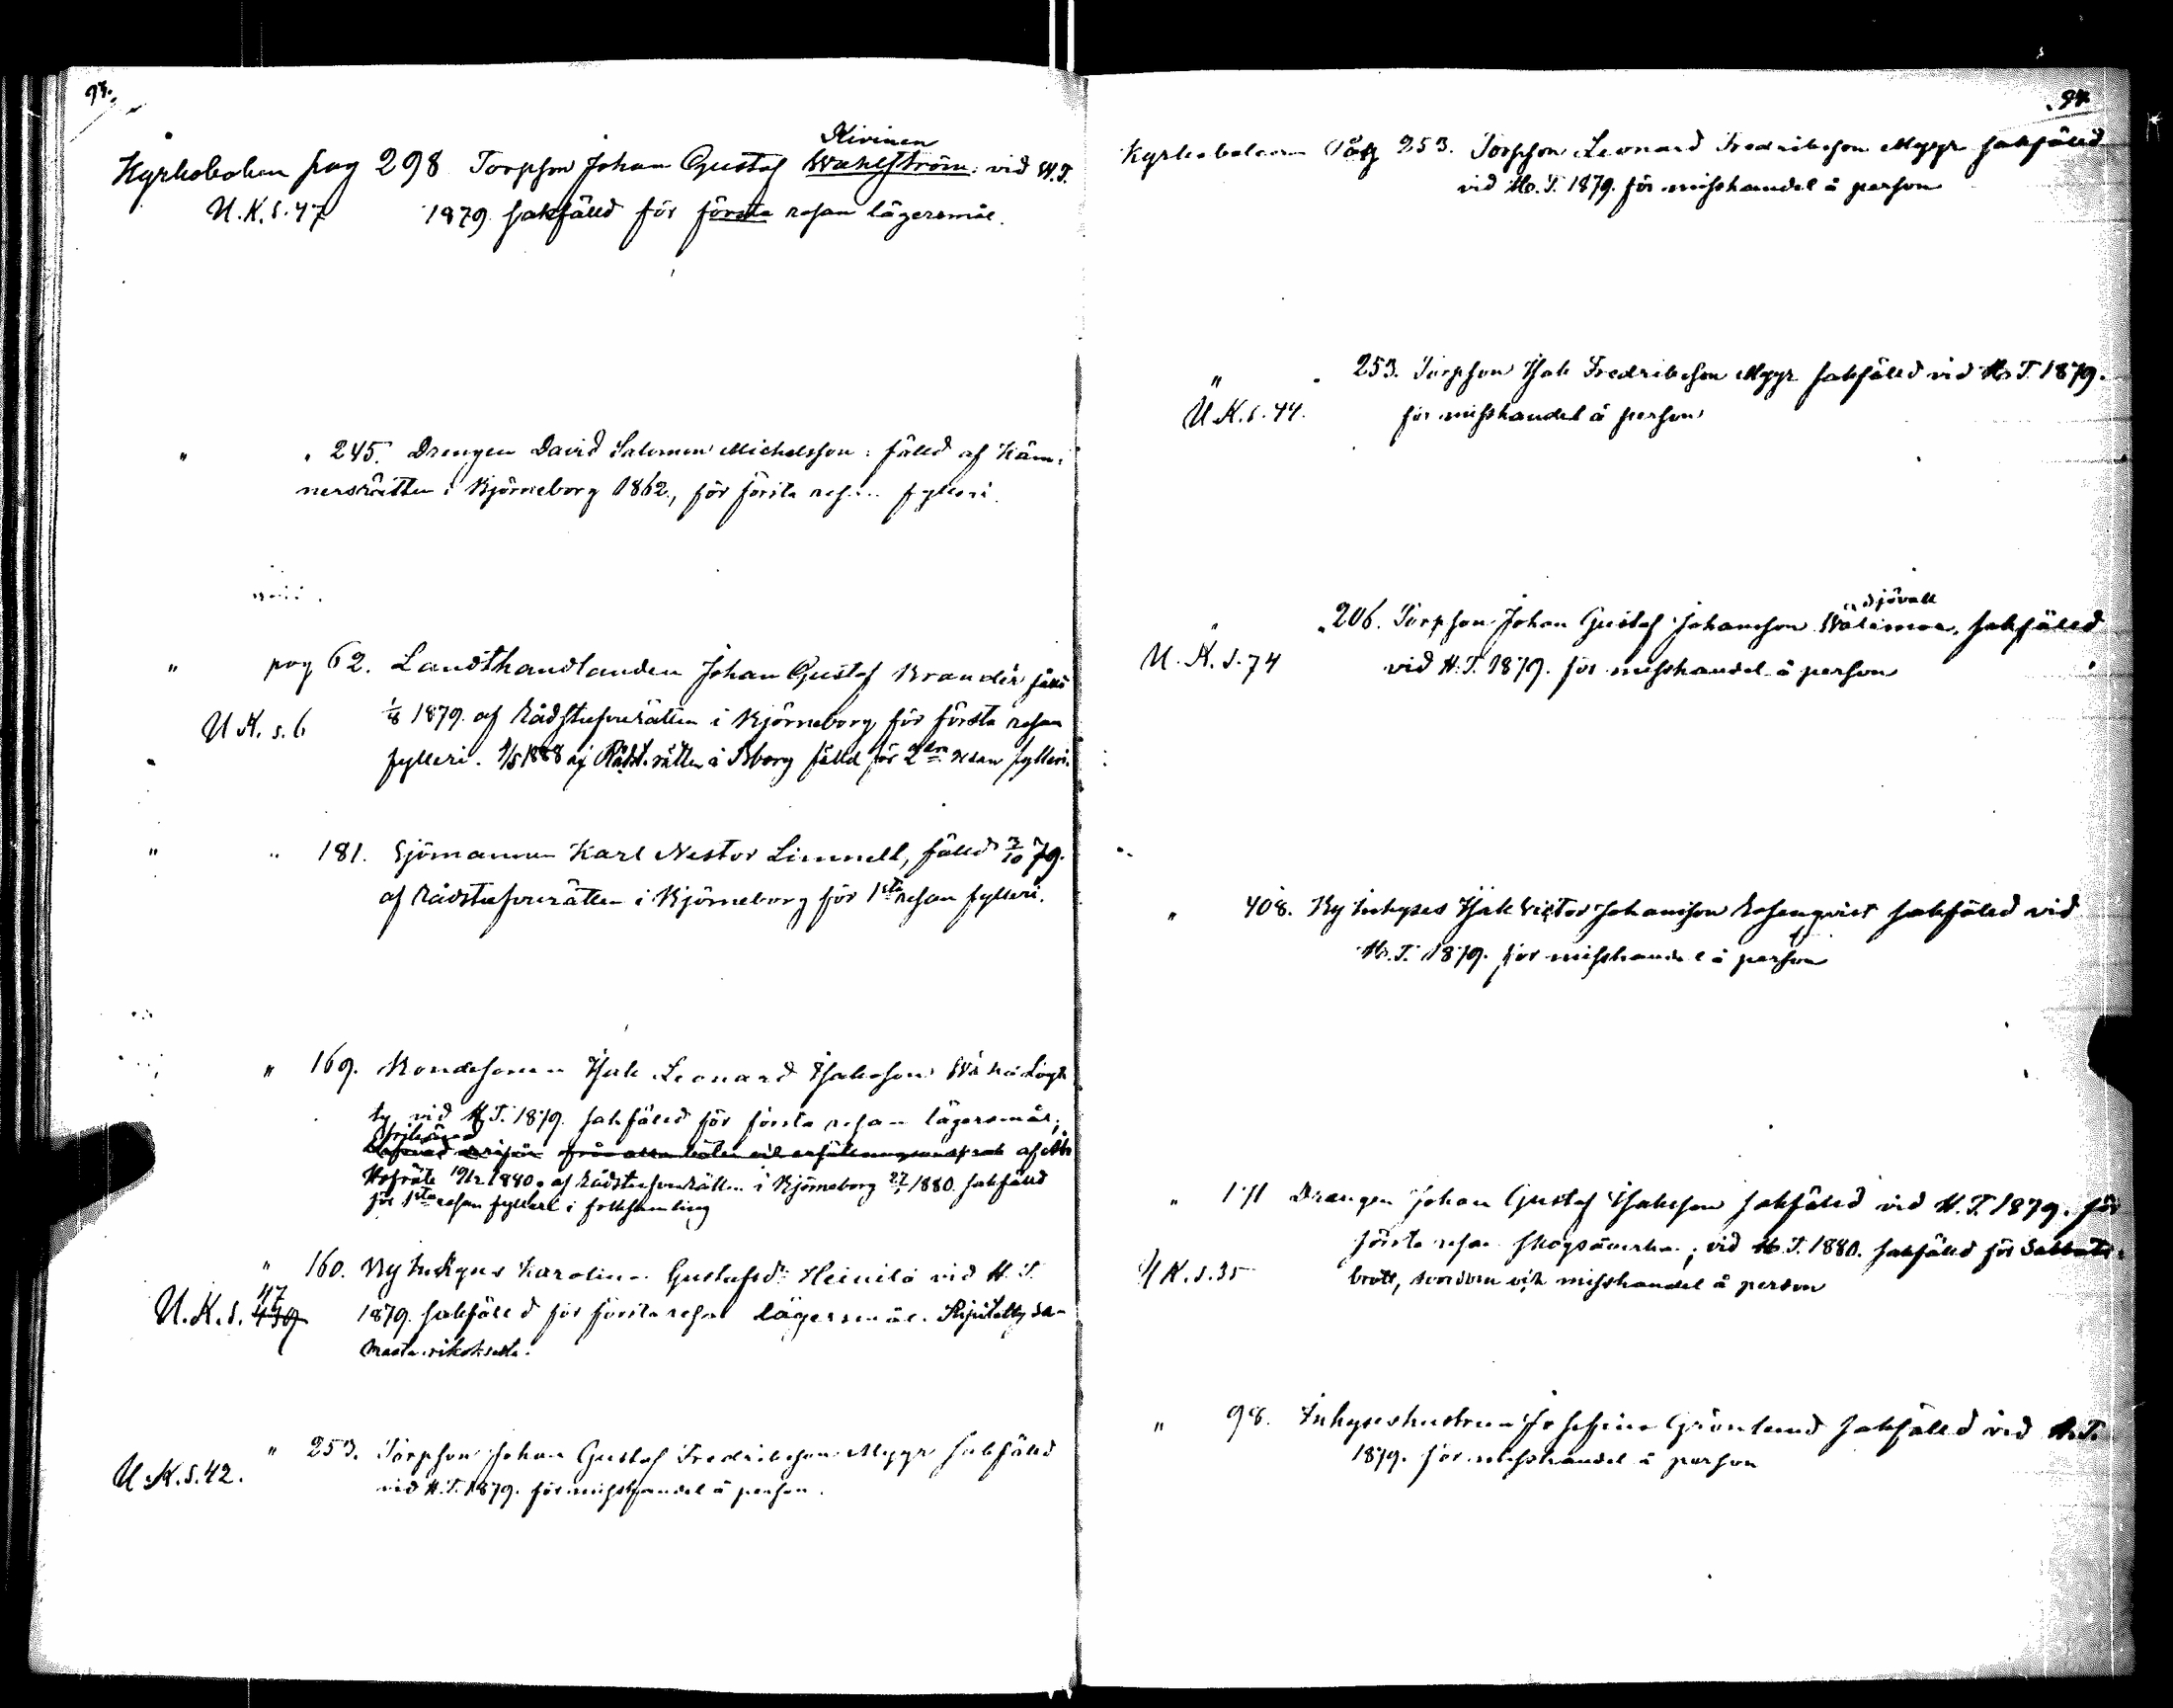 93.
Kivinen
Kyrkoboken pag 298 Torpson Johan Gustaf Wahlström: vid W.T.
U.K.s.47 1879 sakfälld för första resan lägersmål.
" " 245. Drengen David Salomon Michelsson: fälld af Käm-
nersrätten i Björneborg 1862, för första resan fylleri.
" pag 62. Landthandlanden Johan Gustaf Brander fälld
U.K. s.6 1/8 1879 af Rådstufvurätten i Björneborg för första resan
fylleri. 9/5 1888 af Rådst.rätten i Bborg fälld för 2dra resan fylleri.
" " 181. Sjömannen Karl Nestor Limnell, fälld 3/10 79.
af Rådstufvurätten i Björneborg för 1sta resan fylleri.
" 169. Bondesonen Isak Leonard Isaksson
vid H.T. 1879. sakfälld för första resan lägersmål;
Frikänd
af Åbo
Hofrätt 19/12 1880. af Rådstufvurätten i Björneborg 27/1 1880. sakfälld
för 1sta resan fylleri i folksamling
" 160. Karolina Gustafsd: Heinilä vid H.T.
47
U.K.s. 439 1879. sakfälld för första resan lägersmål. Ripitetty sa-
masta rikoksesta.
" 253. Torpson Johan Gustaf Fredriksson Myyr sakfälld
U.K.s.42. vid H.T. 1879. för misshandel å person.
94.
Kyrkoboken Pag 253. Torpson Leonard Fredriksson Myyr sakfälld
vid Ho.T. 1879. för misshandel å person
" " 253. Torpson Isak Fredriksson Myyr sakfälld vid Ho.T. 1879.
U.K.s.44. för misshandel å person
" 206. Torpson Johan Gustaf Johansson sakfälld
U.K.s.74 vid H.T. 1879. för misshandel å person
" 408. Isak Victor Johansson Rosenqvist sakfälld vid
Ho.T. 1879. för misshandel å person
" 171 Drengen Johan Gustaf Isaksson sakfälld vid H.T. 1879. för
första resan skogsåverkan; vid Ho.T. 1880. sakfälld för Sabbats-
U.K.s.35 brott, svordom och misshandel å person
" 98. Inhyseshustrun Josefina Grönlund sakfälld vid H.T.
1879. för misshandel å person